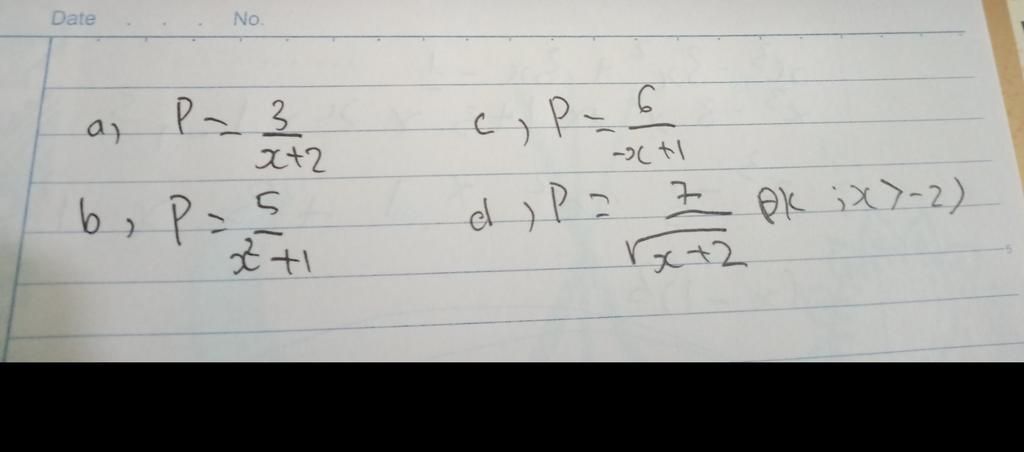 Date . . . No.
a, P = 3/(x+2)
b, P = 5/(x²+1)
c, P = 6/(-x+1)
d, P = 7/√(x+2) ĐK ; x > -2)